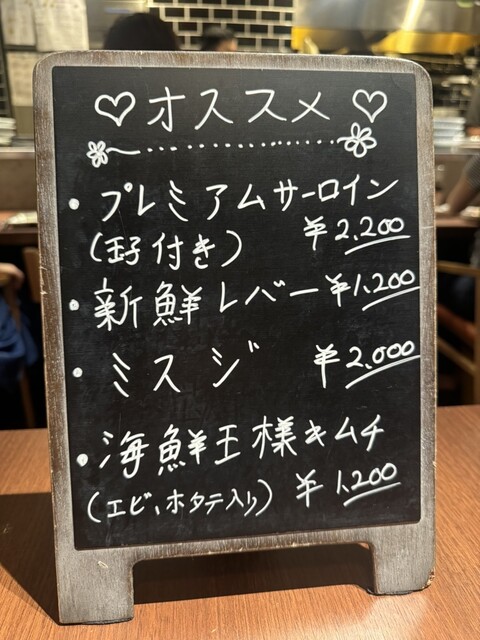 ♡オススメ♡
・プレミアムサーロイン
(玉子付き) ¥2,200
・新鮮レバー ¥1,200
・ミスジ ¥2,000
・海鮮王様キムチ
(エビ、ホタテ入り) ¥1,200